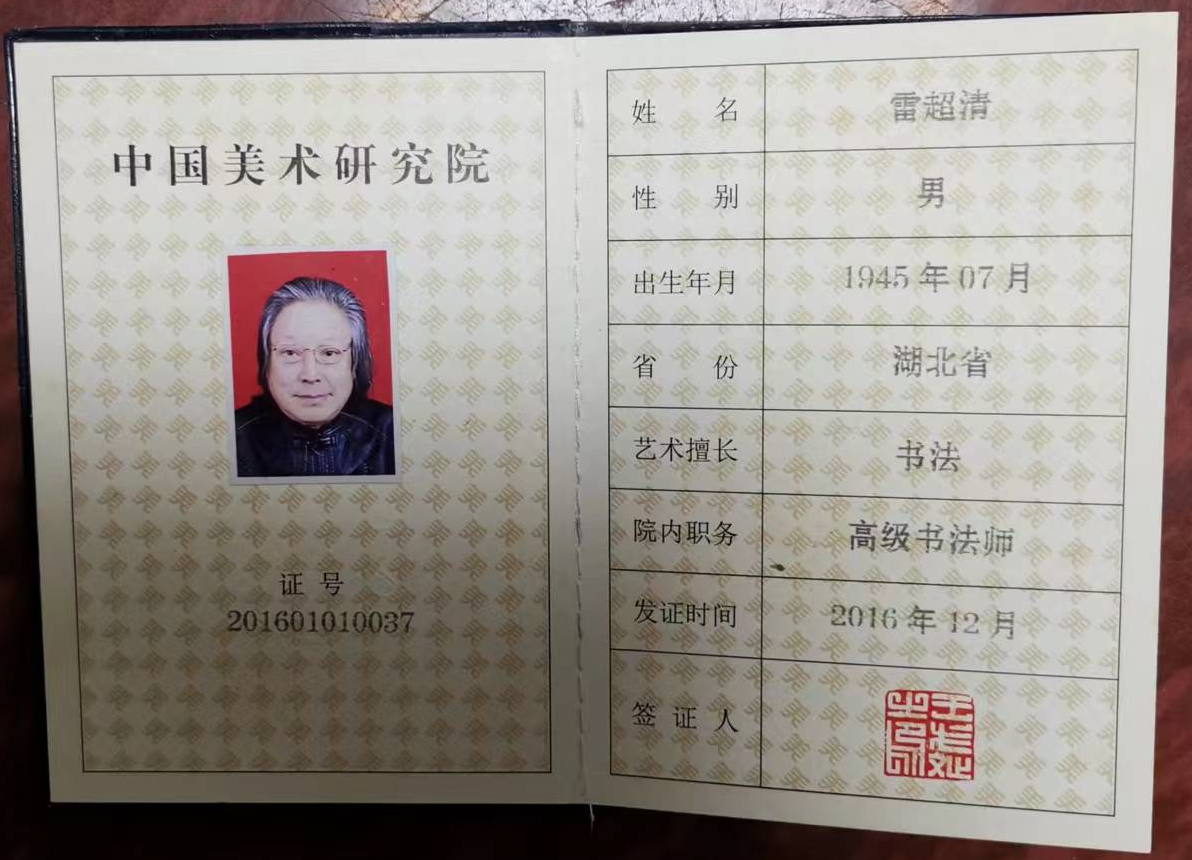 中国美术研究院
证号
201601010037
姓名 雷超清
性别 男
出生年月 1945年07月
省份 湖北省
艺术擅长 书法
院内职务 高级书法师
发证时间 2016年12月
签证人